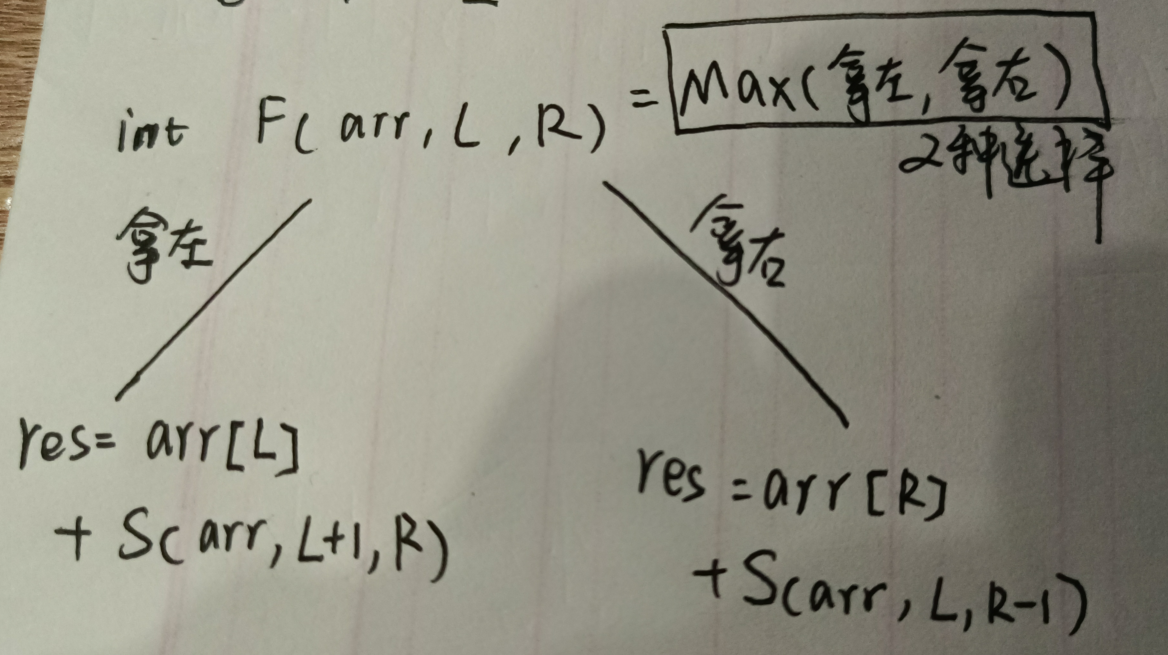 int F(arr, L, R) = Max(拿左, 拿右)
2种选择
拿左
拿右
res= arr[L]
+ S(arr, L+1, R)
res = arr[R]
+ S(arr, L, R-1)